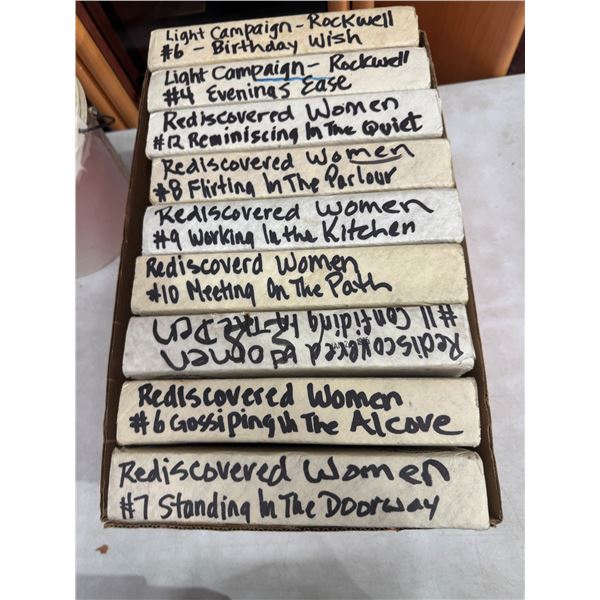 Light Campaign - Rockwell
#6 - Birthday Wish
Light Campaign - Rockwell
#4 Evenings Ease
Rediscovered Women
#12 Reminiscing In The Quiet
Rediscovered Women
#8 Flirting In The Parlour
Rediscovered Women
#9 Working In the Kitchen
Rediscoverd Women
#10 Meeting On The Path
Rediscovered Women
#11 Confiding In The Den
Rediscovered Women
#6 Gossiping In The Alcove
Rediscovered Women
#7 Standing In The Doorway